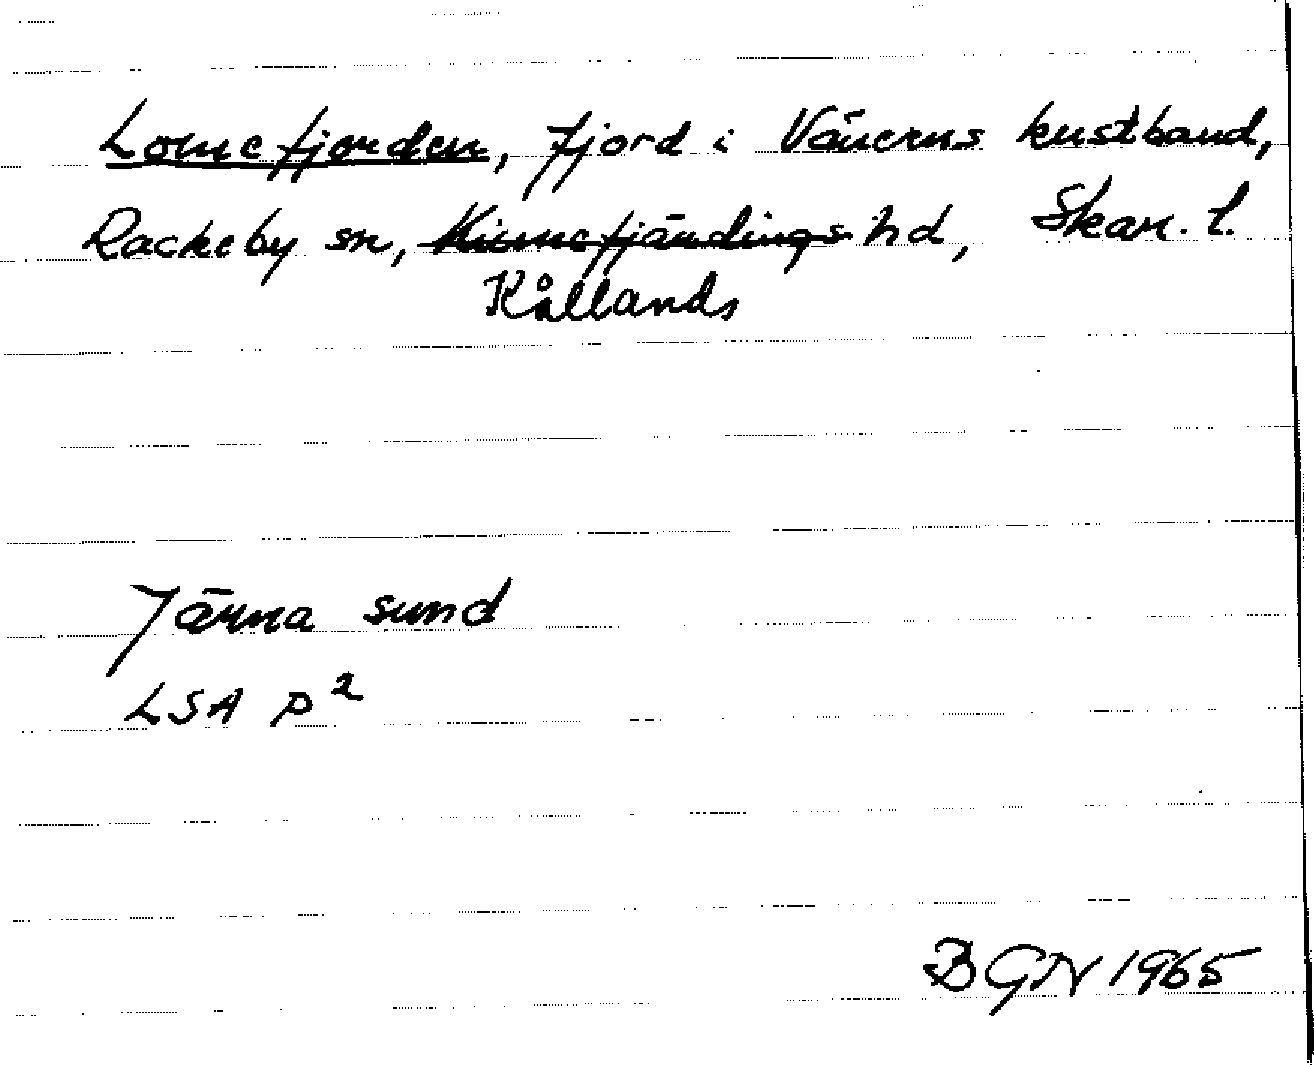 Lomefjorden, fjord i Vänerns kustband,
Rackeby sn, Kinnefjärdings hd, Skar. l.
Kållands
Järna sund
LSA P²
BGN 1965